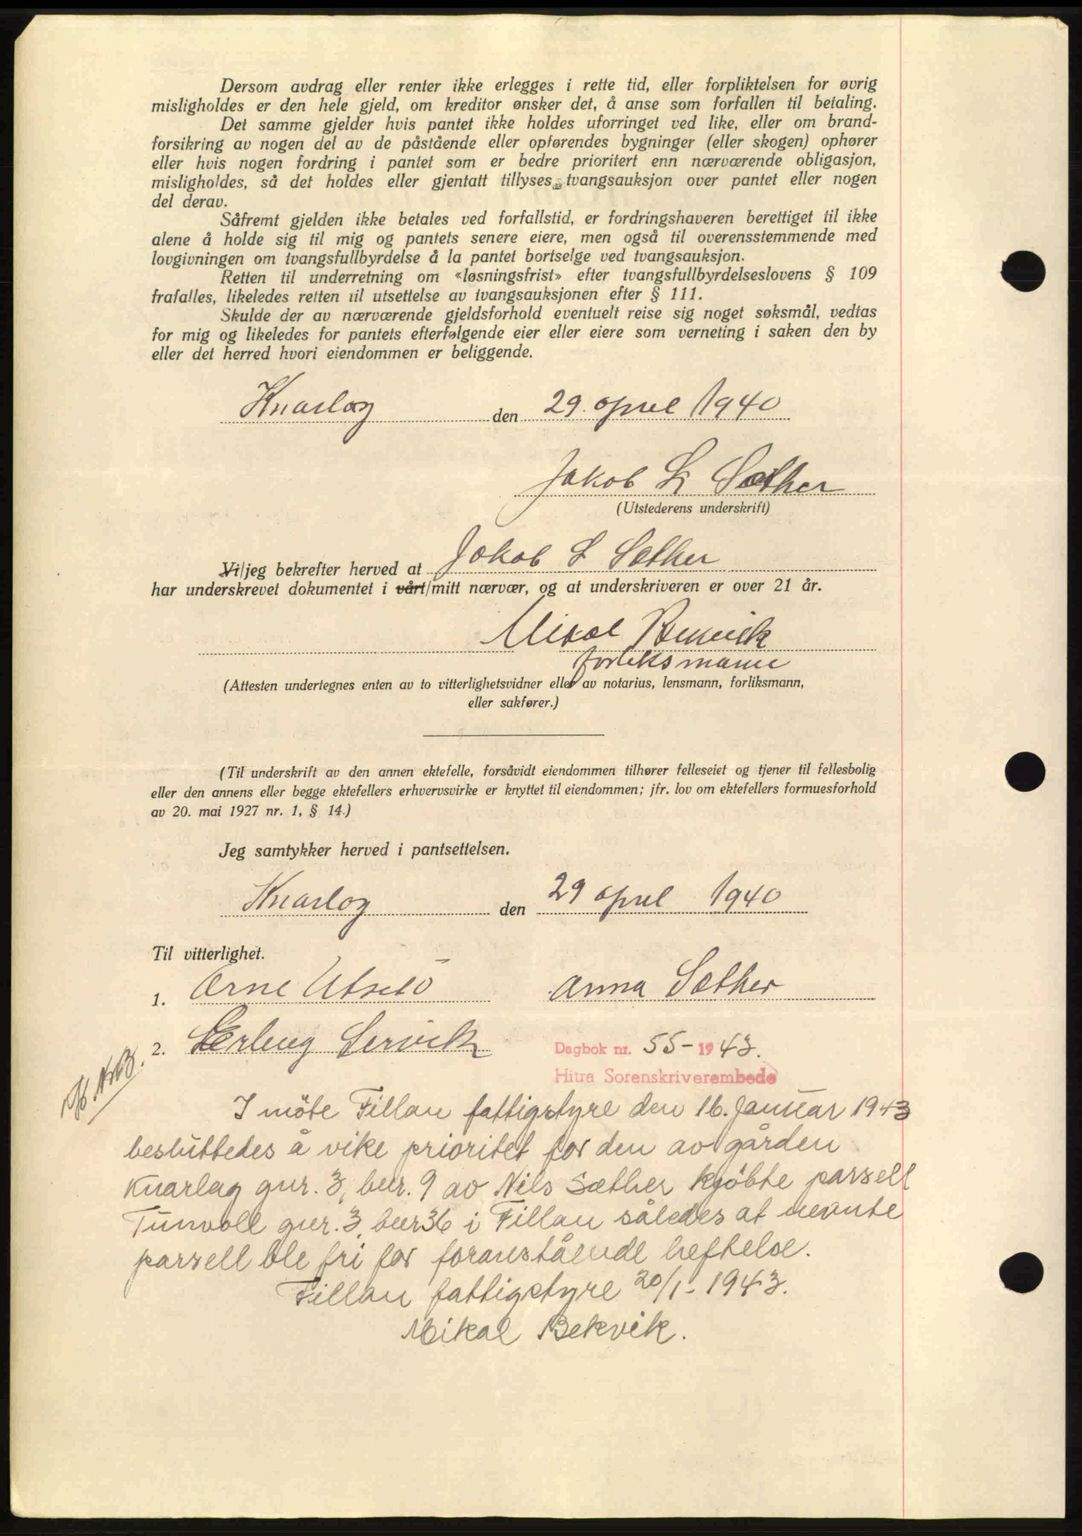 Dersom avdrag eller renter ikke erlegges i rette tid, eller forpliktelsen for øvrig
misligholdes er den hele gjeld, om kreditor ønsker det, å anse som forfallen til betaling.
Det samme gjelder hvis pantet ikke holdes uforringet ved like, eller om brand-
forsikring av nogen del av de påstående eller opførendes bygninger (eller skogen) ophører
eller hvis nogen fordring i pantet som er bedre prioritert enn nærværende obligasjon,
misligholdes, så det holdes eller gjentatt tillyses tvangsauksjon over pantet eller nogen
del derav.
Såfremt gjelden ikke betales ved forfallstid, er fordringshaveren berettiget til ikke
alene å holde sig til mig og pantets senere eiere, men også til overensstemmende med
lovgivningen om tvangsfullbyrdelse å la pantet bortselge ved tvangsauksjon.
Retten til underretning om «løsningsfrist» efter tvangsfullbyrdelseslovens § 109
frafalles, likeledes retten til utsettelse av tvangsauksjonen efter § 111.
Skulde der av nærværende gjeldsforhold eventuelt reise sig noget søksmål, vedtas
for mig og likeledes for pantets efterfølgende eier eller eiere som verneting i saken den by
eller det herred hvori eiendommen er beliggende.
Knarlag den 29. april 1940
Jakob L Sæther
(Utstederens underskrift)
Vi/jeg bekrefter herved at Jakob L Sæther
har underskrevet dokumentet i vårt/mitt nærvær, og at underskriveren er over 21 år.
Mikal Bekvik
forliksmann
(Attesten undertegnes enten av to vitterlighetsvidner eller av notarius, lensmann, forliksmann,
eller sakfører.)
(Til underskrift av den annen ektefelle, forsåvidt eiendommen tilhører felleseiet og tjener til fellesbolig
eller den annens eller begge ektefellers erhvervsvirke er knyttet til eiendommen; jfr. lov om ektefellers formuesforhold
av 20. mai 1927 nr. 1, § 14.)
Jeg samtykker herved i pantsettelsen.
Knarlag den 29 april 1940
Til vitterlighet.
1. Arne Utsetø Anna Sæther
2. Erling Servik
Dagbok nr. 55-1943.
Hitra Sorenskriverembede
I möte Fillan fattigstyre den 16. Januar 1943
besluttedes å vike prioritet for den av gården
Knarlag gnr. 3, bnr. 9 av Nils Sæther kjöbte parsell
Tunvoll gnr. 3, bnr 36 i Fillan således at nevnte
parsell ble fri for foranstående heftelse.
Fillan fattigstyre 20/1-1943.
Mikal Bekvik.